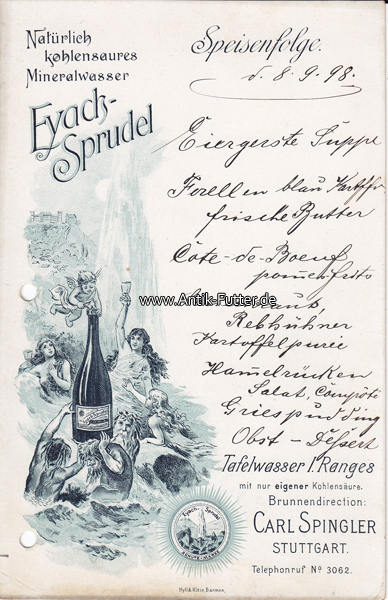 Natürlich
kohlensaures
Mineralwasser
Eyach-
Sprudel
Speisenfolge.
d. 8. 9. 98.
Eiergerste Suppe
Forellen blau Kartoffe
frische Butter
Côte-de-Boeuf
pommfrits
www.Antik-Futter.de
Kraut,
Rebhühner
Kartoffelpurée
Hamelrücken
Salat, Compôte
Griespudding
Obst - Dessert
Tafelwasser I. Ranges
mit nur eigener Kohlensäure.
Brunnendirection:
CARL SPINGLER
STUTTGART.
Telephonruf No 3062.
Eyach Sprudel
Hyll & Klein, Barmen.